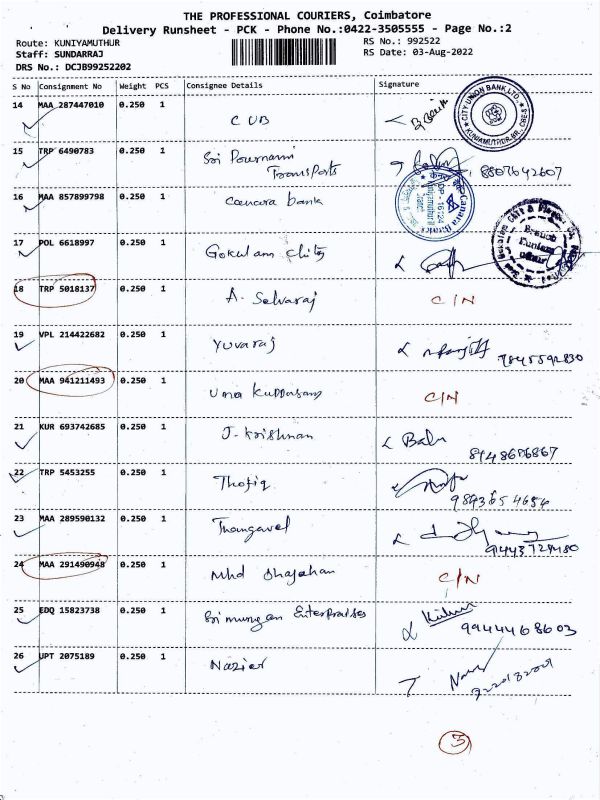 THE PROFESSIONAL COURIERS, Coimbatore
Delivery Runsheet - PCK - Phone No.:0422-3505555 - Page No.:2
Route: KUNIYAMUTHUR RS No.: 992522
Staff: SUNDARRAJ RS Date: 03-Aug-2022
DRS No.: DCJB99252202
S No Consignment No Weight PCS Consignee Details Signature
14 MAA 287447010 0.250 1 CUB
CITY UNION BANK LTD.,
15 TRP 6490783 0.250 1 Sri Pournami Transports 8807642607
16 MAA 857899798 0.250 1 Canara bank
17 POL 6618997 0.250 1 Gokulam chits
18 TRP 5018137 0.250 1 A. Selvaraj C/N
19 VPL 214422682 0.250 1 Yuvaraj
20 MAA 941211493 0.250 1 Uma C/N
21 KUR 693742685 0.250 1 J. Krishnan Balu
22 TRP 5453255 0.250 1 Thofiq
23 MAA 289590132 0.250 1 Thangavel
24 MAA 291490948 0.250 1 Mhd Shajahan C/N
25 EDQ 15823738 0.250 1 Sri murugan Enterprises
9944468603
26 UPT 2075189 0.250 1 Nazier
3